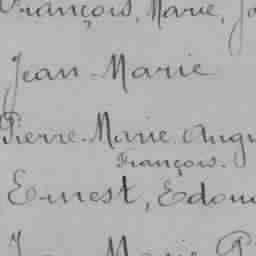 François, Marie, Jo
Jean-Marie
Pierre-Marie Augu
François.
Ernest, Edoua
Marie